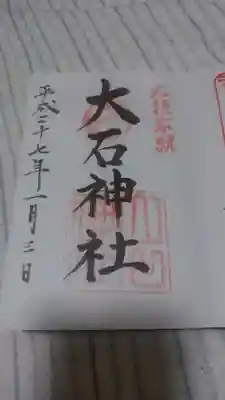 大石神社
平成二十七年一月三日